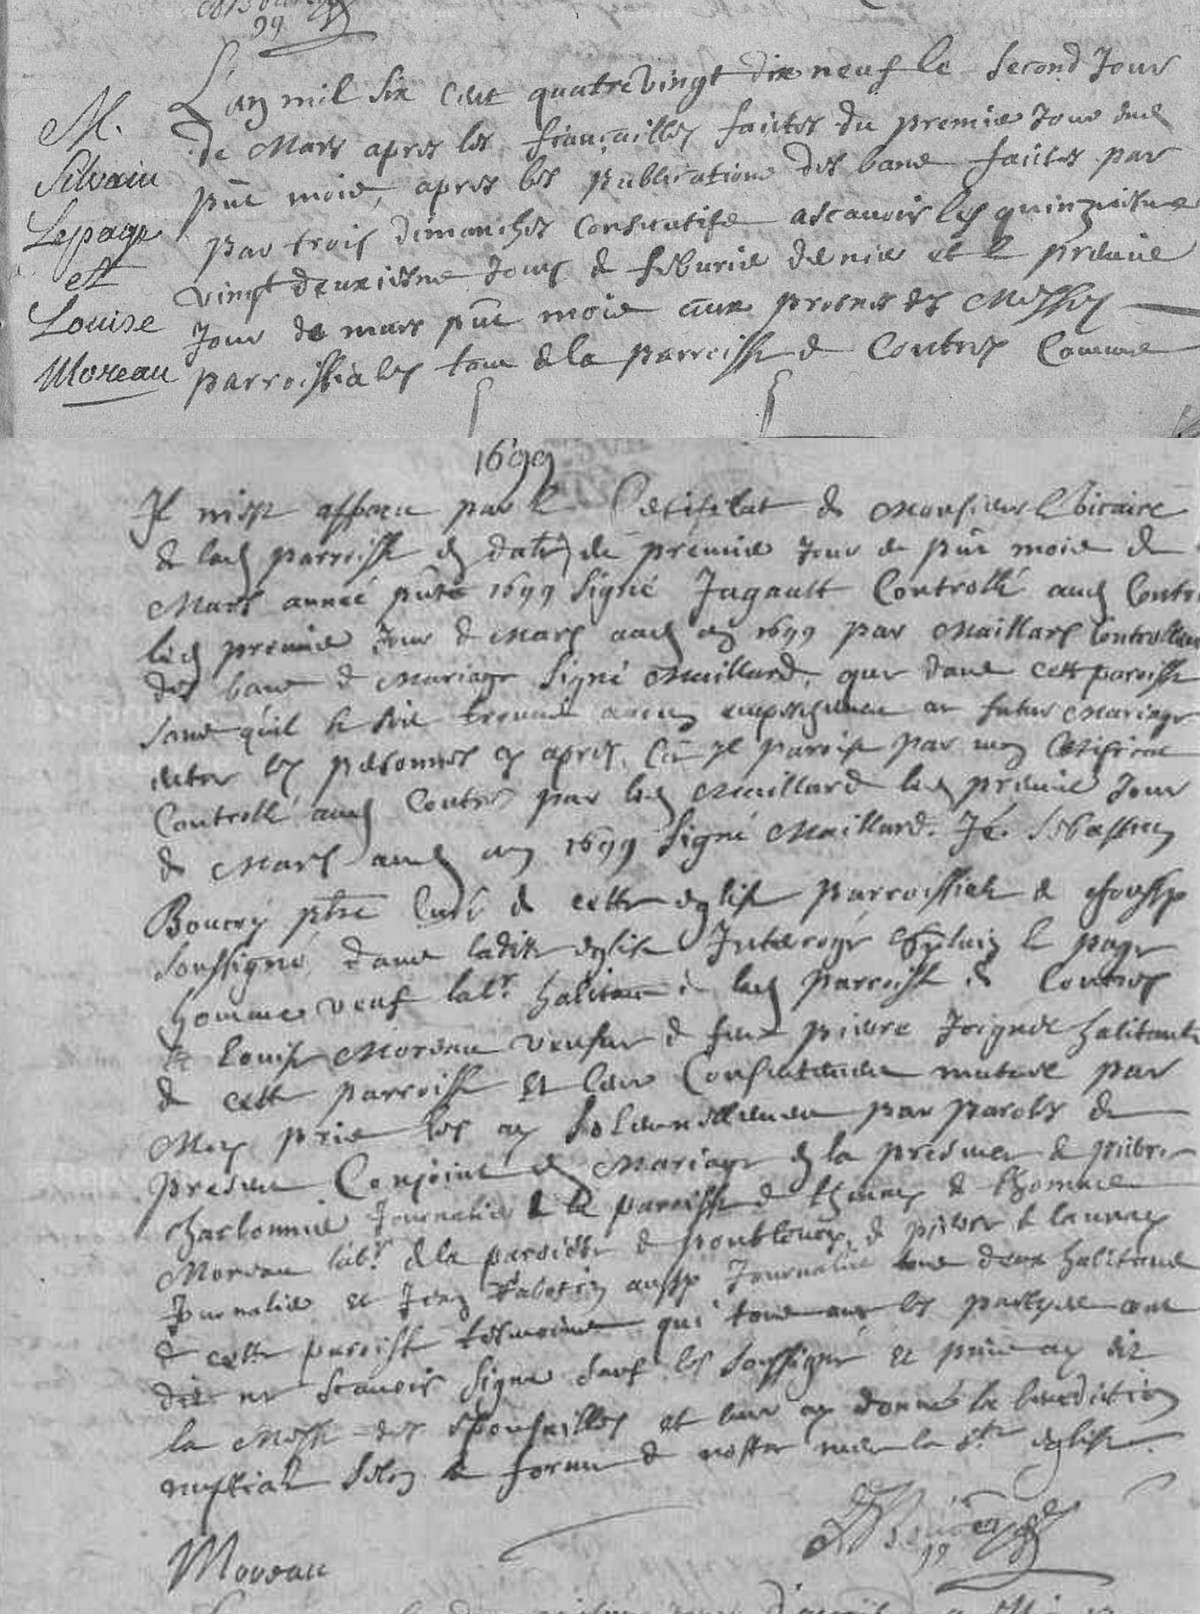 M.
Silvain
Lepage
et
Louise
Moreau
L'an mil six cent quatre vingt dix neuf le second Jour
de Mars apres les fiançailles faites du premier Jour dud
pnt mois, apres les publications des bans faites par
par trois dimanches consecutifs ascavoir les quinziesme
vingt deuxiesme Jours de febvrier denier et le premier
Jour de mars pnt mois aux prosnes des Messes
parroissiales tant de la parroisse de Contres Comme
1699
Il m'est apparu par le Certificat de Monsieur le Vicaire
de lad parroisse en datte de premier Jour de pnt mois de
Mars année pnte 1699 signé Jugault Controllé aud Contres
led premier Jour de Mars aud an 1699 par Maillard Controlleur
des bans de Mariage signé Maillard, que dans cette paroisse
sans qu'il se soit trouvé aucun empeschement au futur Mariage
entre les personnes cy apres, Co il paroist par mon Certificat
Controllé aud Contres par led Maillard led premier Jour
de Mars aud an 1699 signé Maillard. Je Sebastien
Boucry pbre Curé de cette eglise parroissiale de
soussigné, dans ladite eglise Interrogé Sylvin le page
homme veuf lab.r habitant de lad parroisse de Contres
et Louise Moreau veufve de feu pierre Joignet habitante
de cette parroisse et leur Consentement mutuel par
Moy pris les ay solennellement par parolles de
present Conjoint en Mariage en la presence de pierre
charbonnier Journalier de la paroisse de de thomas
Moreau lab.r de la paroisse de pontlevoy, de pierre de launay
Journalier et Jean aussy Journalier tous deux habitans
de cette paroisse tesmoins qui tous avec les parties ont
dit ne scavoir signer sauf les soussignés et puis ay dit
la Messe des Espousailles et leur ay donné la benediction
nuptiale selon la forme de nostre mere la Ste eglise.
Moreau